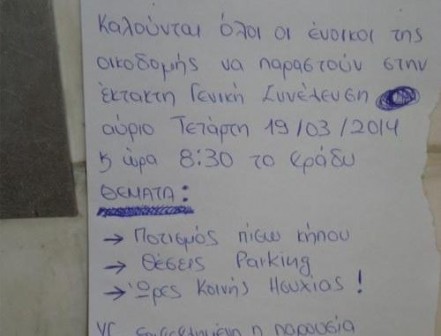 Καλούνται όλοι οι ένοικοι της
οικοδομής να παραστούν στην
έκτακτη Γενική Συνέλευση
αύριο Τετάρτη 19/03/2014
κ ώρα 8:30 το βράδυ
ΘΕΜΑΤΑ:
→ Ποτισμός πίσω κήπου
→ Θέσεις Parking
→ Ώρες Κοινής Ησυχίας!
η παρουσία